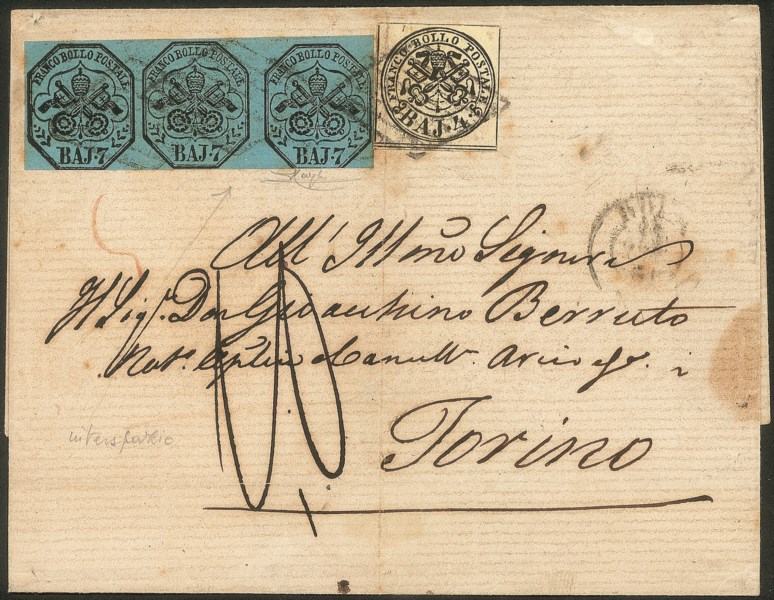 FRANCO BOLLO POSTALE BAJ. 7
FRANCO BOLLO POSTALE BAJ. 7
FRANCO BOLLO POSTALE BAJ. 7
FRANCO BOLLO POSTALE BAJ. 4
All' Illmo Signore
Il Sigr. Don Gioacchino Berruto
Torino
interspazio